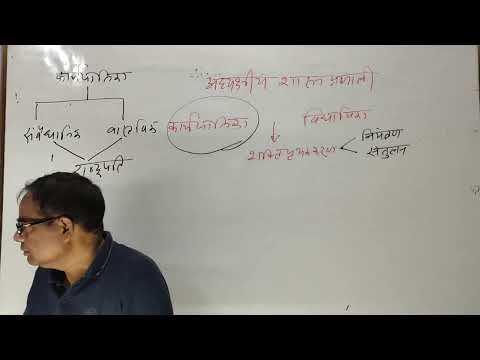 कार्यपालिका
संवैधानिक वास्तविक
राष्ट्रपति
अध्यक्षीय शासन प्रणाली
कार्यपालिका विधायिका
शक्ति पृथक्करण
नियंत्रण
संतुलन